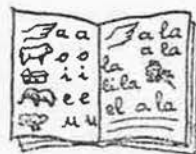 a a
o o
i i
e e
u u
a la
a la
la
lila
el a la